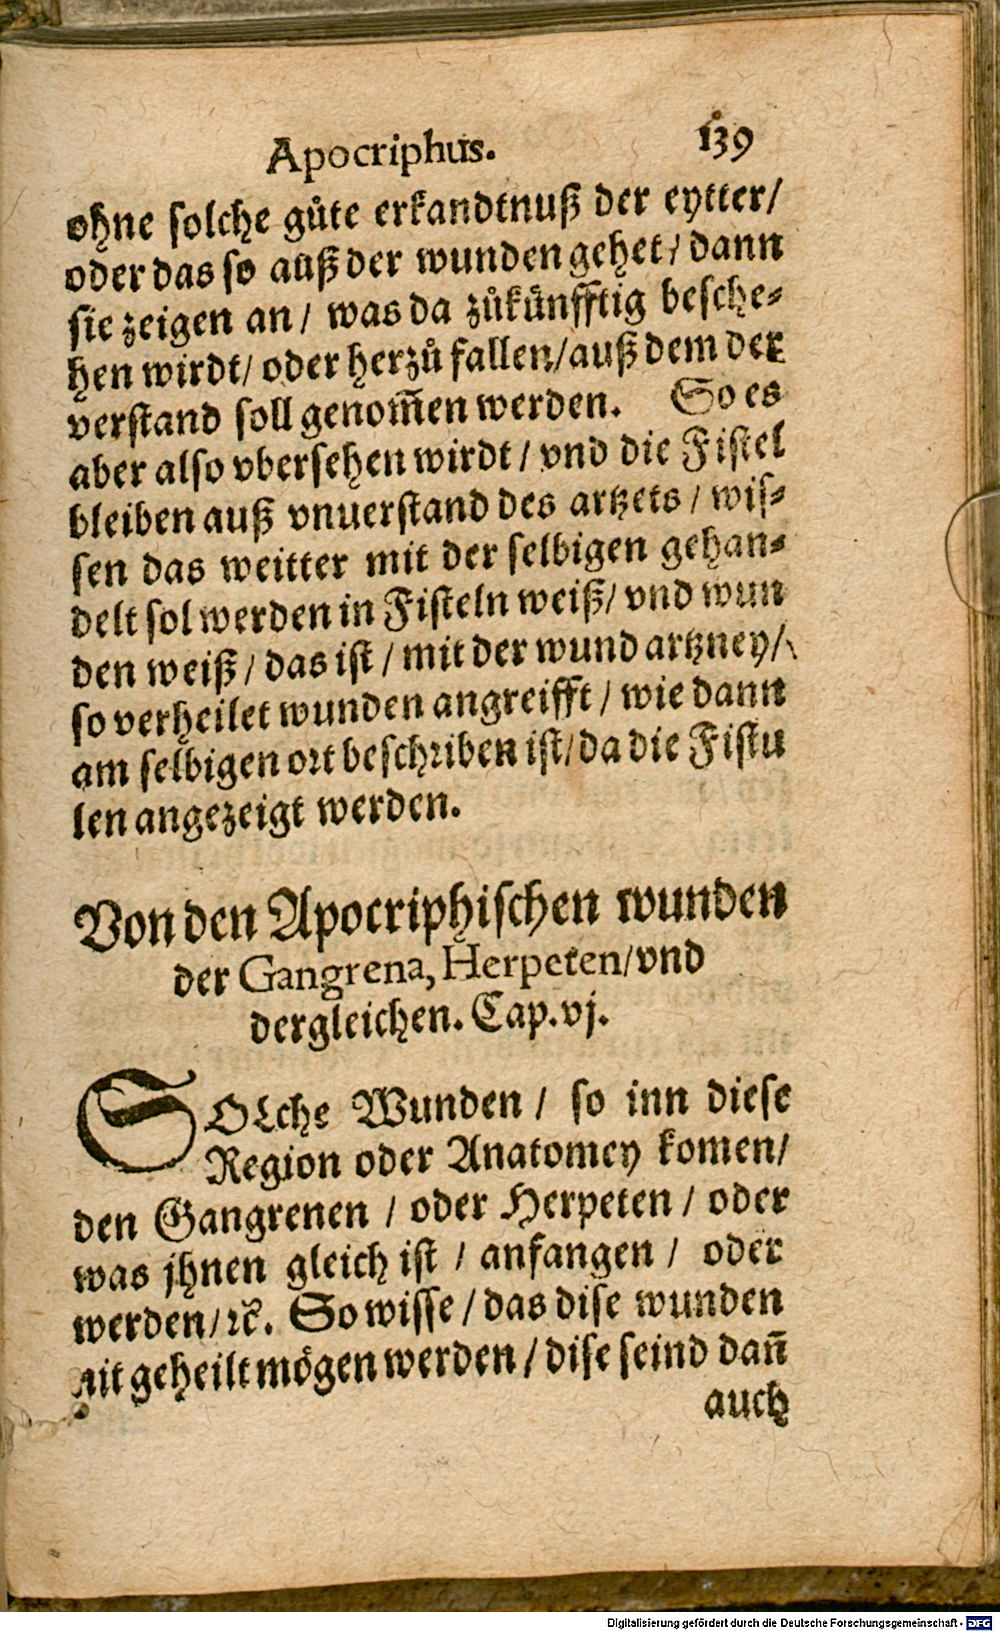 Apocriphus. 139
ohne solche guͤte erkandtnuß der eytter/
oder das so auß der wunden gehet/ dann
sie zeigen an/ was da zuͦkünfftig besche⸗
hen wirdt/ oder herzuͦ fallen/ auß dem der
verstand soll genom̃en werden. So es
aber also vbersehen wirdt/ vnd die Fistel
bleiben auß vnuerstand des artzets/ wis⸗
sen das weitter mit der selbigen gehan⸗
delt sol werden in Fisteln weiß/ vnd wun
den weiß/ das ist/ mit der wund artzney/
so verheilet wunden angreifft/ wie dann
am selbigen ort beschriben ist/ da die Fistu
len angezeigt werden.
Von den Apocriphischen wunden
der Gangrena, Herpeten/ vnd
dergleichen. Cap. vj.
SOLche Wunden/ so inn diese
Region oder Anatomey komen/
den Gangrenen/ oder Herpeten/ oder
was jhnen gleich ist/ anfangen/ oder
werden/ ꝛc̃. So wisse/ das dise wunden
nit geheilt moͤgen werden/ dise seind dañ
auch
Digitalisierung gefördert durch die Deutsche Forschungsgemeinschaft - DFG